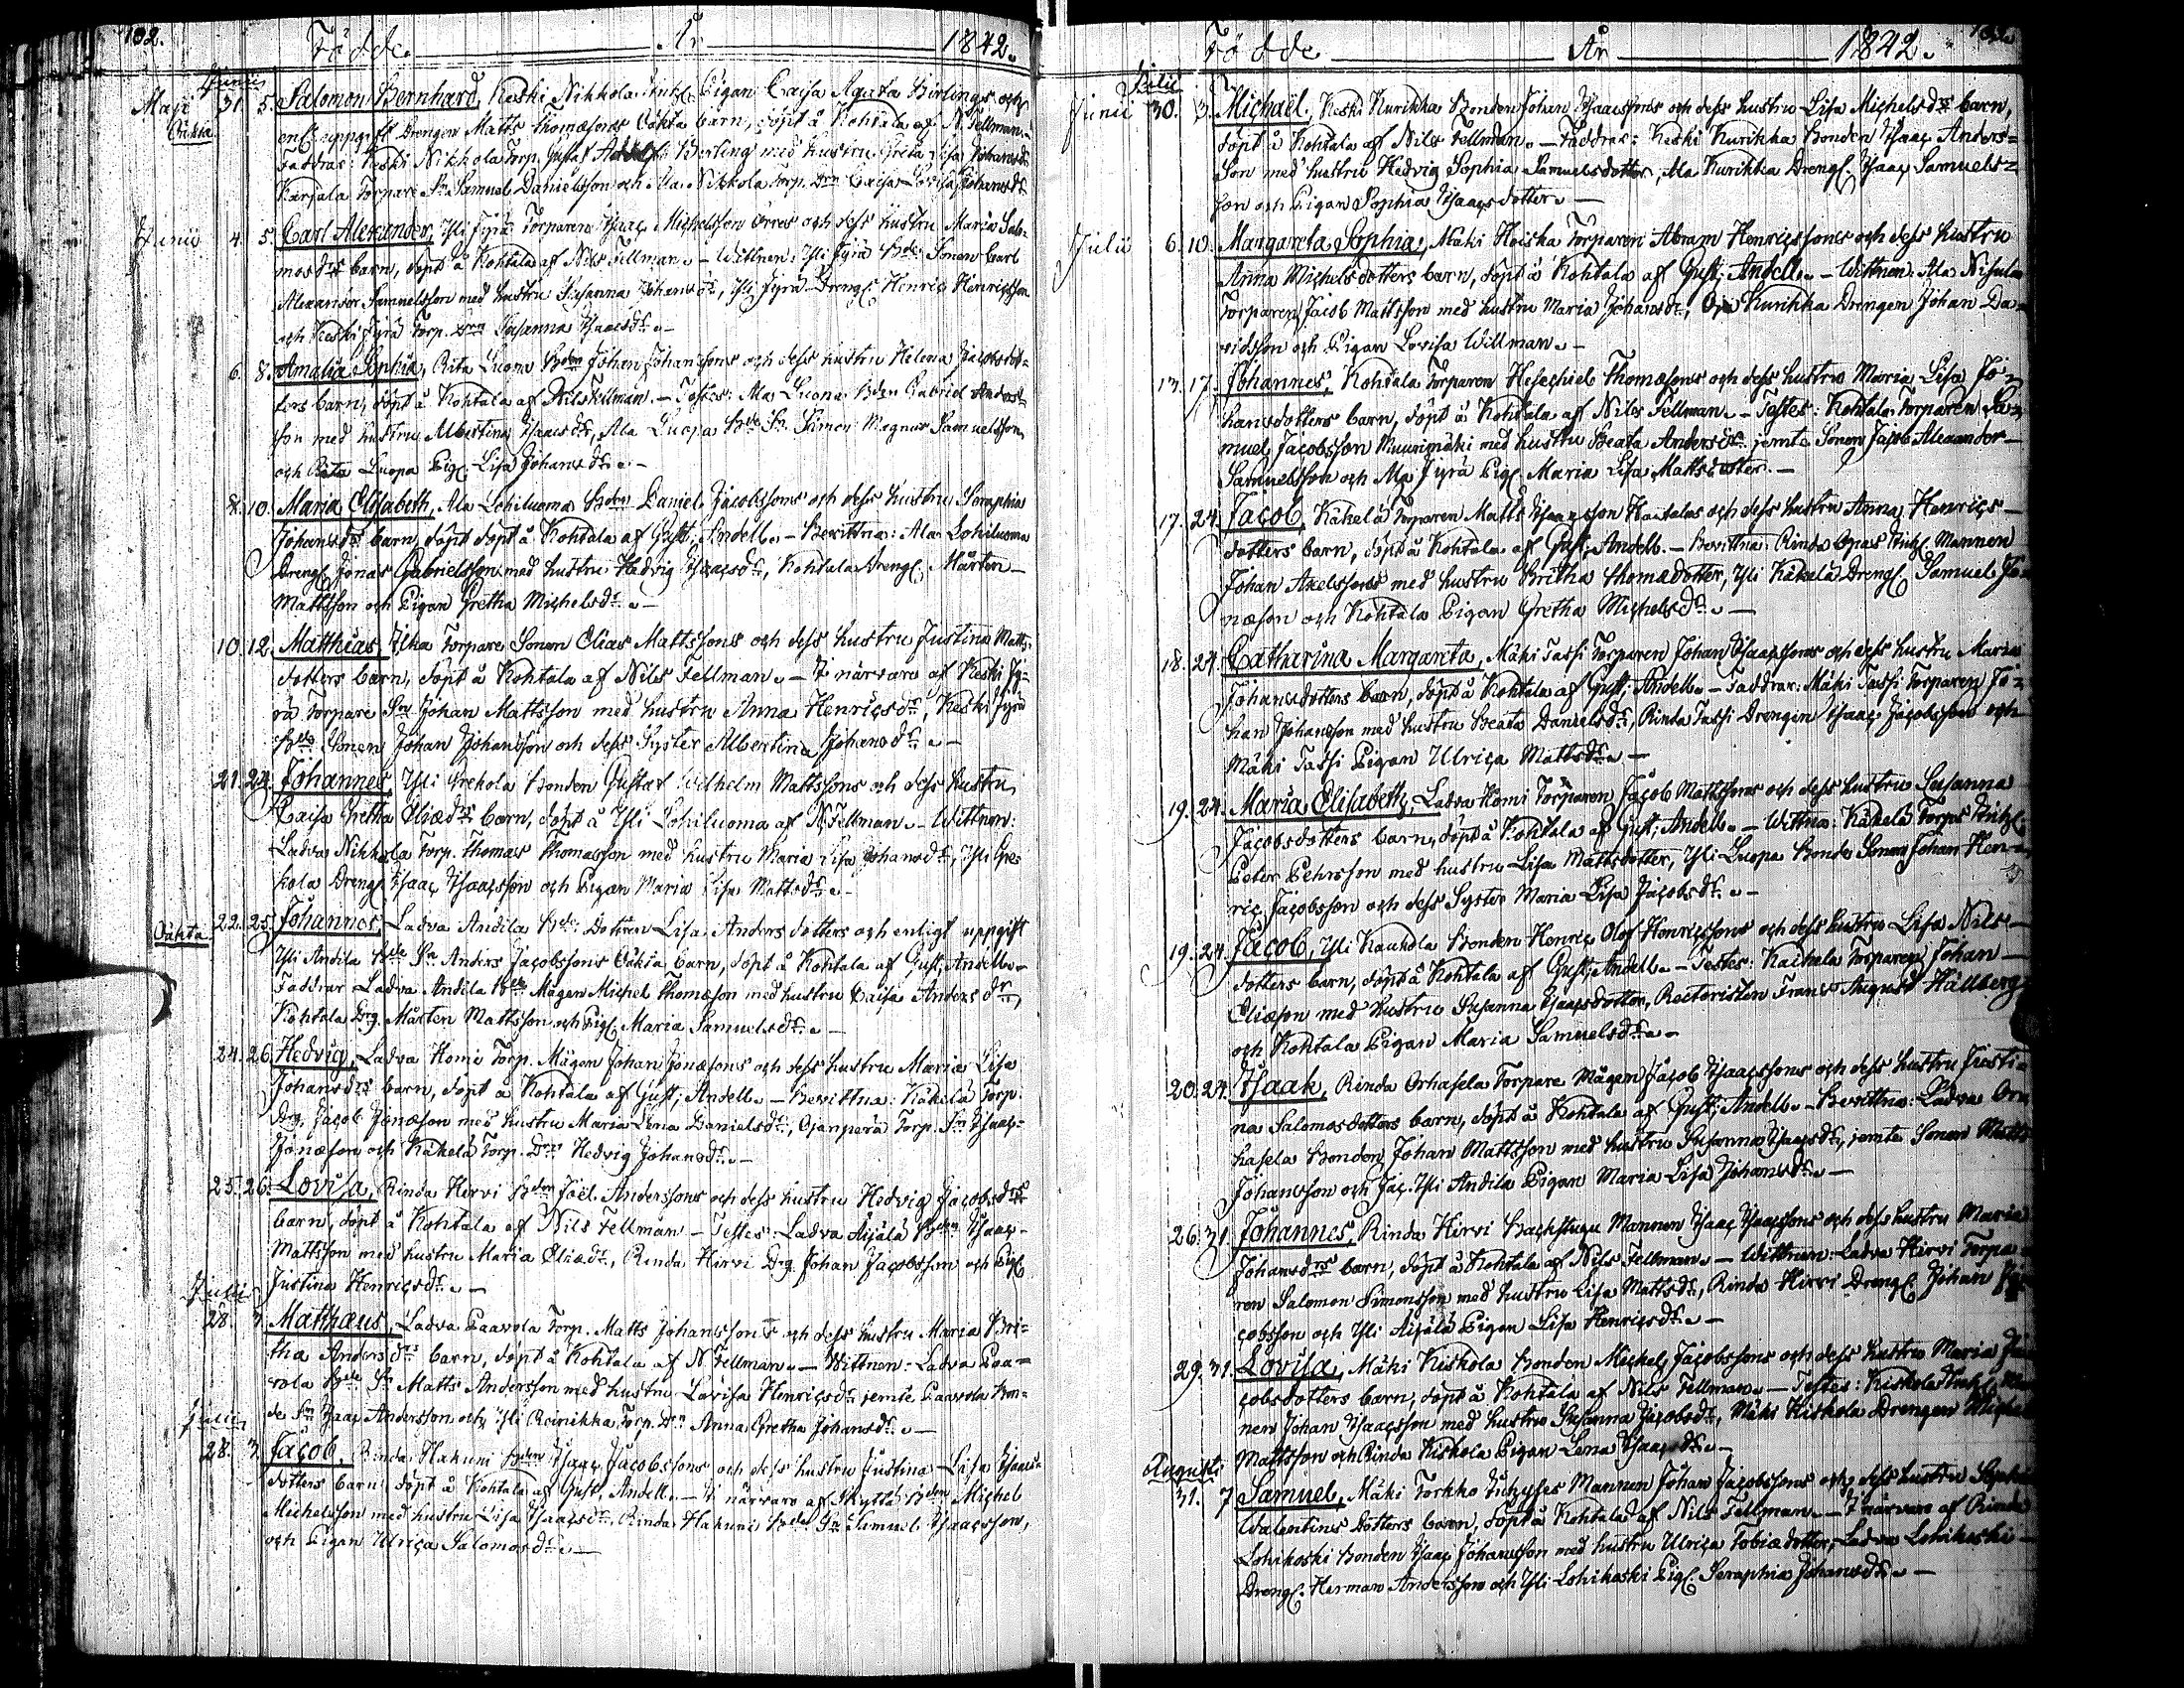 132.
Födde År 1842.
Junii
Maji 31. 5. Salomon Bernhard, Keski Nikkola Pigan Caisa Agata Birlings och
Oäkta enl. uppgift Drengen Matts Thomæsons Oäkta barn, döpt å Kohtala af N. Fellman.
Faddrar: Keski Nikkola Torp. Gustaf Adolf Berling med hustru Greta Lisa Johansdr
Karjala Torpare Sn Samuel Danielsson och Ala Nikkola Torp. Drn Caisa Lovisa Johansdr
Junii 4. 5. Carl Alexander, Yli Jyrä Torparen Isaac Michelsson Orres och dess hustru Maria Salo-
mosdrs barn, döpt å Kohtala af Nils Fellman. – Wittnen: Yli Jyrä Bde Sonen Carl
Alexander Samuelsson med hustru Susanna Johansdr, Yli Jyrä Drengl. Henric Henricsson
och Keski Jyrä Torp. Drn Susanna Isaacsdr. –
6. 8. Amalia Sophia, Rita Luoma Bden Johan Johanssons och dess hustru Helena Jacobsdot-
ters barn, döpt å Kohtala af Nils Fellman. – Testes: Ala Luoma Bden Gabriel Anders-
son med hustru Albertina Isaacsdr, Ala Luopa Bde Sn Simon Magnus Samuelsson
och Rita Luopa Pig. Lisa Johansdr. –
8. 10. Maria Elisabeth, Ala Lohiluoma Bden Daniel Jacobssons och dess hustru Seraphia
Johansdrs barn, döpt döpt å Kohtala af Gust. Andell. – Bevittna: Ala Lohiluoma
Drengl. Jonas Gabrielsson med hustru Hedvig Isaacsdr, Kohtala Drengl. Mårten
Mattsson och Pigan Gretha Michelsdr. –
10. 12. Matthias, Ilka Torpare Sonen Elias Mattssons och dess hustru Justina Matts-
dotters barn, döpt å Kohtala af Nils Fellman. – I närvaro af Keski Jy-
rä Torpare Sn Johan Mattsson med hustru Anna Henricsdr, Keski Jyrä
Bde Sonen Johan Johansson och dess Syster Albertina Johansdr. –
21. 24. Johannes, Yli Grekola Bonden Gustaf Wilhelm Mattssons och dess hustru
Caisa Gretha Eliædrs barn, döpt å Yli Lohiluoma af N. Fellman. – Wittnen:
Ladva Nikkola Torp. Thomas Thomasson med hustru Maria Lisa Johansdr, Yli Gre-
kola Drengl. Isaac Isaacsson och Pigan Maria Lisa Mattsdr. –
Oäkta 22. 25. Johannes, Ladva Andila Bde Dottren Lisa Andersdotters och enligt uppgift
Yli Andila Bde Sn Anders Jacobssons Oäkta barn, döpt å Kohtala af Gust. Andell. –
Faddrar Ladva Andila Bde Mågen Michel Thomæson med hustru Caisa Andersdr,
Kohtala Drg. Mårten Mattsson och Pig. Maria Samuelsdr. –
24. 26. Hedvig, Ladva Homi Torp. Mågen Johan Jonæsons och dess hustru Maria Lisa
Johansdrs barn, döpt å Kohtala af Gust. Andell. – Bevittna: Käkelä Torp.
Drg. Jacob Jonæson med hustru Maria Lena Danielsdr, Ojanperä Torp. Sn Isaac
Jonæson och Käkelä Torp. Drn Hedvig Johansdr. –
25. 26. Lovisa, Rinda Hirvi Bden Joël Anderssons och dess hustru Hedvig Jacobsdrs
barn, döpt å Kohtala af Nils Fellman – Testes: Ladva Äijälä Bden Isaac
Mattsson med hustru Maria Eliædr, Rinda Hirvi Drg. Johan Jacobsson och Pig.
Justina Henricsdr. –
Julii
28. 3. Matthæus, Ladva Paavola Torp. Matts Johanssons och dess hustru Maria Bri-
tha Andersdrs barn, döpt å Kohtala af N. Fellman. – Wittnen: Ladva Paa-
vola Bde Sn Matts Andersson med hustru Lovisa Henricsdr jemte Paavola Bon-
de Sn Isaac Andersson och Yli Reinikka Torp. Drn Anna Gretha Johansdr. –
Julii
28. 3. Jacob, Rinda Hakuni Bden Isaac Jacobssons och dess hustru Justina Lisa Isaacs-
dotters barn döpt å Kohtala af Gust. Andell. – I närvaro af Skyttä Bden Michel
Michelsson med hustru Lisa Isaacsdr, Rinda Hakuni Bde Sn Samuel Isaacsson,
och Pigan Ulrica Salomosdr. –
Födde År 1842.
Julii
Junii 30. 3. Michaël, Keski Kurikka Bonden Johan Isaacssons och dess hustru Lisa Michelsdrs barn,
döpt å Kohtala af Nils Fellman. – Faddrar: Keski Kurikka Bonden Isaac Anders-
son med hustru Hedvig Sophia Samuelsdotter, Ala Kurikka Drengl. Isaac Samuels-
son och Pigan Sophia Isaacsdotter. –
Julii 6. 10. Margareta Sophia, Mäki Hoiska Torparen Abram Henricssons och dess hustru
Anna Michelsdotters barn, döpt å Kohtala af Gust. Andell. – Wittnen: Ala Nisula
Torparen Jacob Mattsson med hustru Maria Johansdr, Kurikka Drengen Johan Da-
vidsson och Pigan Lovisa Willman. –
13. 17. Johannes, Kohtala Torparen Hesechiel Thomæsons och dess hustru Maria Lisa Jo-
hansdotters barn, döpt å Kohtala af Nils Fellman. – Testes: Kohtala Torparen Sa-
muel Jacobsson Muurimäki med hustru Beata Andersdr jemte Sonen Jacob Alexander
Samuelsson och Ala Jyrä Pig. Maria Lisa Mattsdotter. –
17. 24. Jacob, Käkelä Torparen Matts Isaacsson Hautalas och dess hustru Anna Henrics-
dotters barn, döpt å Kohtala af Gust. Andell. – Bevittna: Rinda Opas Mannen
Johan Axelssons med hustru Britha Thomædotter, Yli Käkelä Drengl. Samuel Jo-
næson och Kohtala Pigan Gretha Michelsdr. –
18. 24. Catharina Margareta, Mäki Tassi Torparen Johan Isaacssons och dess hustru Maria
Johansdotters barn, döpt å Kohtala af Gust. Andell. – Faddrar: Mäki Tassi Torparen Jo-
han Johansson med hustru Beata Danielsdr, Rinda Tassi Drengen Isaac Jacobsson och
Mäki Tassi Pigan Ulrica Mattsdr. –
19. 24. Maria Elisabeth, Ladva Homi Torparen Jacob Mattssons och dess hustru Susanna
Jacobsdotters barn, döpt å Kohtala af Gust. Andell. – Wittna: Käkelä Torps
Peter Pehrsson med hustru Lisa Mattsdotter, Yli Luopa Bonde Sonen Johan Hen-
ric Jacobsson och dess Syster Maria Lisa Jacobsdr. –
19. 24. Jacob, Yli Kaukola Bonden Henric Olof Henricssons och dess hustru Lisa Nils-
dotters barn, döpt å Kohtala af Gust. Andell. – Testes: Torparen Johan
Eliæson med hustru Susanna Isaacsdotter, Rectoristen Frans August Hällberg
och Kohtala Pigan Maria Samuelsdr. –
20. 24. Isaak, Rinda Orhasela Torpare Mågen Jacob Isaacssons och dess hustru Justi-
na Salomosdotters barn, döpt å Kohtala af Gust. Andell. – Bevittna: Ladva Or-
hasela Bonden Johan Mattsson med hustru Susanna Isaacsdr, jemte Sonen Matts
Johansson och Yli Andila Pigan Maria Lisa Johansdr. –
26. 31. Johannes, Rinda Hirvi Backstugu Mannen Isaac Isaacssons och dess hustru Maria
Johansdrs barn, döpt å Kohtala af Nils Fellman. – Wittnen: Ladva Hirvi Torpa-
ren Salomon Simonsson med hustru Lisa Mattsdr, Rinda Hirvi Drengl. Johan Ja-
cobsson och Yli Äijälä Pigan Lisa Henricsdr. –
29. 31. Lovisa, Mäki Kiskola Bonden Michel Jacobssons och dess hustru Maria Ja-
cobsdotters barn, döpt å Kohtala af Nils Fellman. – Testes: Kiskola
nen Johan Isaacsson med hustru Susanna Jacobsdr, Mäki Kiskola Drengen Michel
Mattsson och Rinda Kiskola Pigan Lena Isaacsdr. –
Augusti
31. 7. Samuel, Mäki Torkko Mannen Johan Jacobssons och dess hustru Sophia
Walentins Dotters barn, döpt å Kohtala af Nils Fellman. – I närvaro af Rinda
Lohikoski Bonden Isaac Johansson med hustru Ulrica Tobiædotter, Ladva Lohikoski
Drengl. Herman Andersson och Yli Lohikoski Pig. Seraphia Johansdr. –